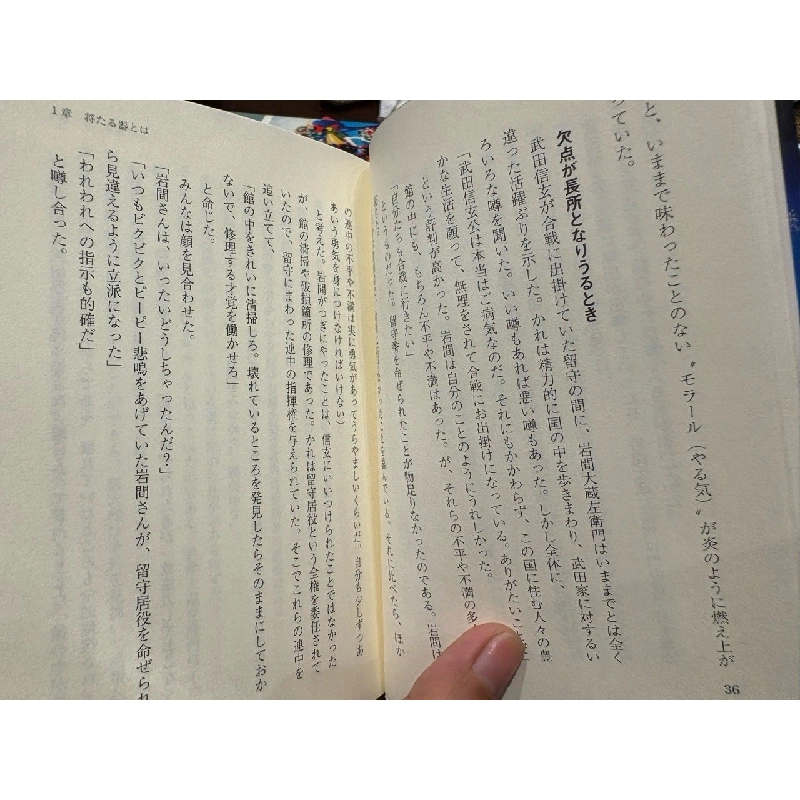 と、いままで味わったことのない〝モラール(やる気)〟が炎のように燃え上が
っていた。
欠点が長所となりうるとき
武田信玄が合戦に出掛けていた留守の間に、岩間大蔵左衛門はいままでとは全く
違った活躍ぶりを示した。かれは精力的に国の中を歩きまわり、武田家に対するい
ろいろな噂を聞いた。いい噂もあれば悪い噂もあった。しかし全体に、
「武田信玄公は本当はご病気なのだ。それにもかかわらず、この国に住む人々の豊
かな生活を願って、無理をされて合戦にお出掛けになっている。ありがたいこと
という評判が高かった。岩間は自分のことのようにうれしかった。
館の中にも、もちろん不平や不満はあった。が、それらの不平や不満の多
「自分たちも合戦に行きたい」
というものだった。留守番を命ぜられたことが物足りなかったのである。岩間は
でいる。それに比べたら、ほか
36
1章 将たる器とは
の連中の不平や不満は実に勇気があってうらやましいくらいだ。自分も少しずつあ
あいう勇気を身につけなければいけない)
と考えた。岩間がつぎにやったことは、信玄にいいつけられたことではなかった
が、館の清掃や破損箇所の修理であった。かれは留守居役という全権を委任されて
いたので、留守にまわった連中の指揮権も与えられていた。そこでこれらの連中を
追い立てて、
「館の中をきれいに清掃しろ。壊れているところを発見したらそのままにしておか
ないで、修理する才覚を働かせろ」
と命じた。
みんなは顔を見合わせた。
「岩間さんは、いったいどうしちゃったんだ?」
「いつもビクビクとピーピー悲鳴をあげていた岩間さんが、留守居役を命ぜられ
ら見違えるように立派になった」
「われわれへの指示も的確だ」
と噂し合った。